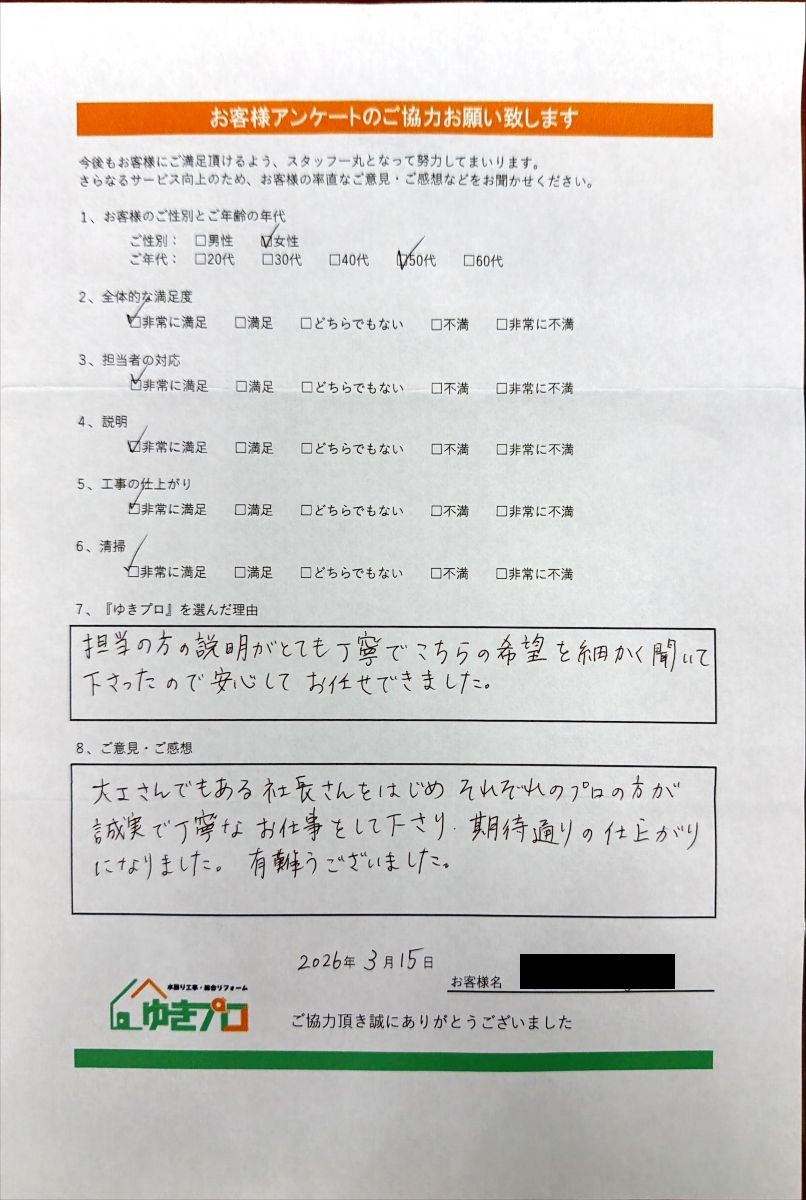 お客様アンケートのご協力お願い致します
今後もお客様にご満足頂けるよう、スタッフ一丸となって努力してまいります。
さらなるサービス向上のため、お客様の率直なご意見・ご感想などをお聞かせください。
1、お客様のご性別とご年齢の年代
ご性別： □男性 ☑女性
ご年代： □20代 □30代 □40代 ☑50代 □60代
2、全体的な満足度
☑非常に満足 □満足 □どちらでもない □不満 □非常に不満
3、担当者の対応
☑非常に満足 □満足 □どちらでもない □不満 □非常に不満
4、説明
☑非常に満足 □満足 □どちらでもない □不満 □非常に不満
5、工事の仕上がり
☑非常に満足 □満足 □どちらでもない □不満 □非常に不満
6、清掃
☑非常に満足 □満足 □どちらでもない □不満 □非常に不満
7、『ゆきプロ』を選んだ理由
担当の方の説明がとても丁寧でこちらの希望を細かく聞いて
下さったので安心して お任せできました。
8、ご意見・ご感想
大工さんでもある社長さんをはじめ それぞれのプロの方が
誠実で丁寧な お仕事をして下さり、期待通りの仕上がり
になりました。 有難うございました。
2026年 3月15日
お客様名
水廻り工事・総合リフォーム
ゆきプロ
ご協力頂き誠にありがとうございました